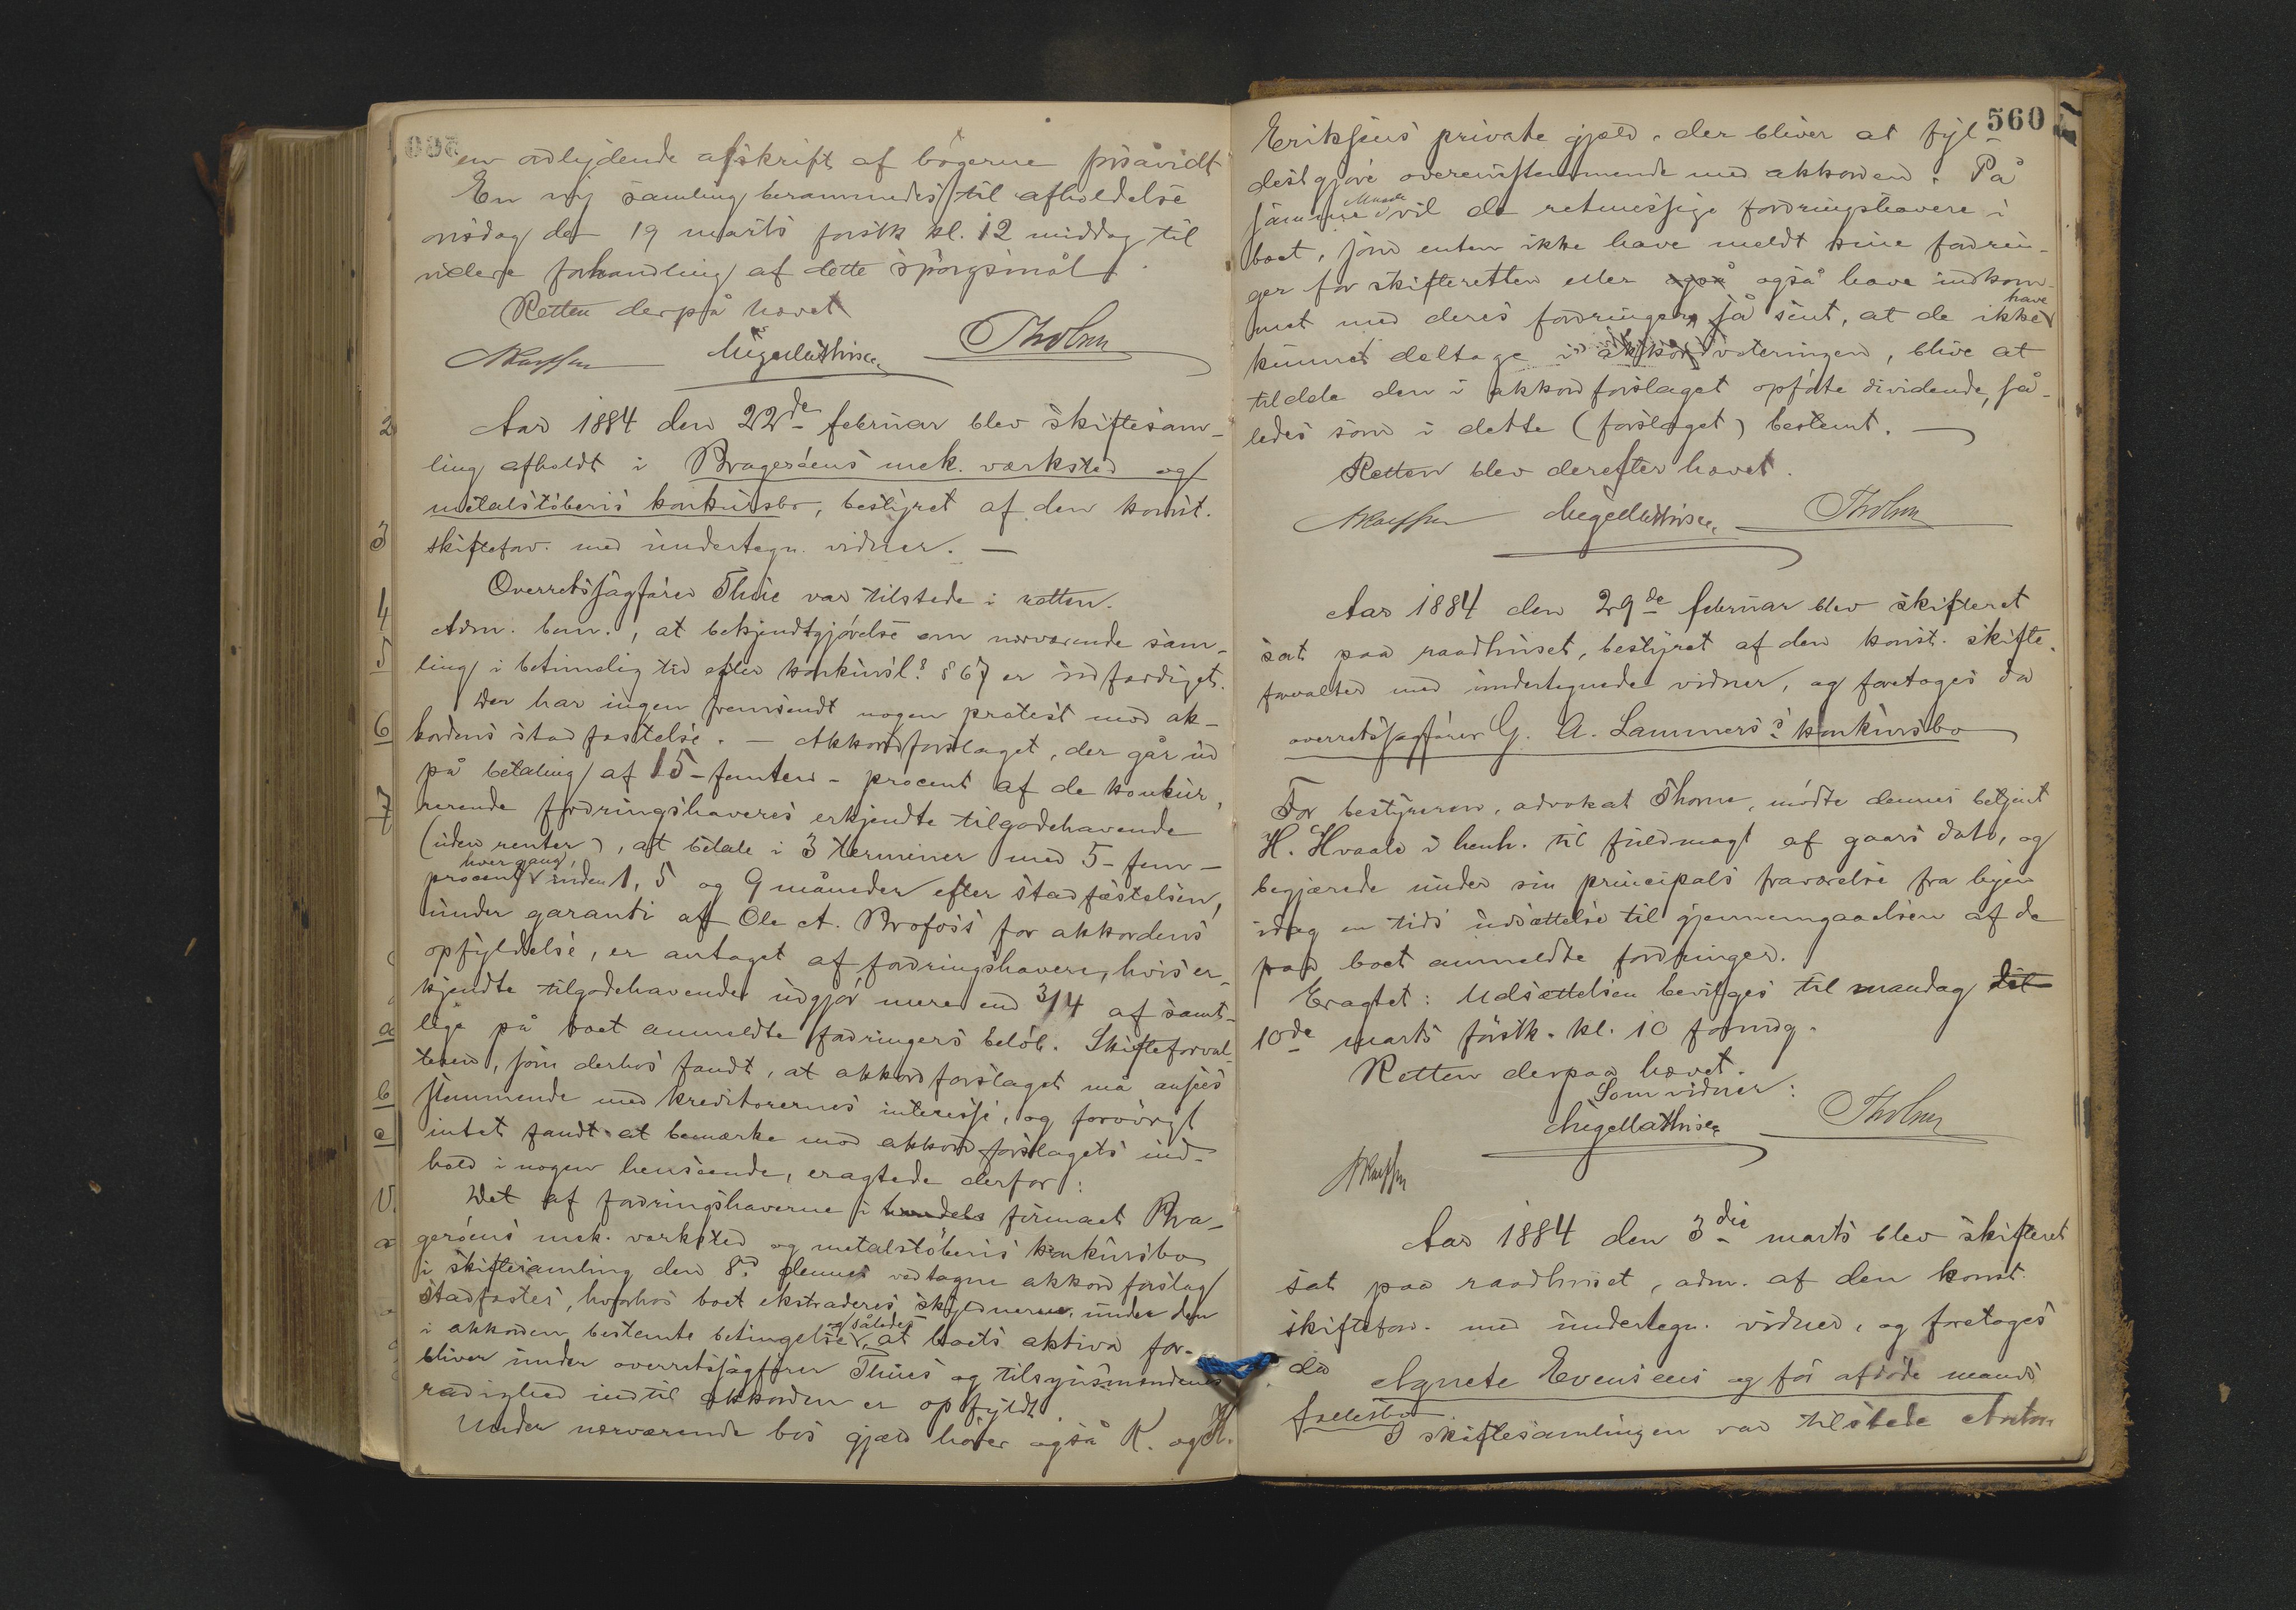 en ordlydende afskrift af bøgerne forsåvidt
En ny samling berammedes til afholdelse
onsdag den 19 marts førstk kl. 12 middag til
videre forhandling af dette spørgsmål.
Retten derpå hævet
Tholsen
Aar 1884 den 22de februar blev skiftesam-
ling afholdt i Bragerøens mek. værksted og
metalstøberis konkursbo, bestyret af den konst.
skifteforv. med undertegn. vidner. —
Overretssagfører Thiis var tilstede i retten.
Adm. bem., at bekjendtgjørelse om nærværende sam-
ling i betimelig tid efter konkursl. § 67 er indfærdiget.
Der har ingen fremsendt nogen protest mod ak-
kordens stadfæstelse. — Akkordforslaget, der går ud
på betaling af 15 - femten - procent af de konkur-
rerende fordringshaveres erkjendte tilgodehavende
(uden renter), at betale i 3 terminer med 5 - fem -
procent hver gang, inden 1, 5 og 9 måneder efter stadfæstelsen,
under garanti af Ole A. Brofoss for akkordens
opfyldelse, er antaget af fordringshavere, hvis er-
kjendte tilgodehavender udgjør mere end 3/4 af samt-
lige på boet anmeldte fordringers beløb. Skifteforval-
teren, som derhos fandt, at akkordforslaget må ansees
stemmende med kreditorernes interesse, og forøvrigt
intet fandt at bemærke mod akkordforslagets ind-
hold i nogen henseende, eragtede derfor:
Det af fordringshaverne i handels firmaet Bra-
gerøens mek. værksted og metalstøberis konkursbo
i skiftesamling den 8de dennes vedtagne akkordforslag
stadfæstes, hvorhos boet ekstraderes skyldnerne, under den
i akkorden bestemte betingelse og således, at boets aktiva for-
bliver under overretssagfører Thiis og tilsynsmændenes
rådighed indtil akkorden er opfyldt.
Under nærværende bos gjæld hører også K. og H.
560
Eriksens private gjæld, der bliver at fyl-
destgjøre overensstemmende med akkorden. På
samme Maade vil de retmessige fordringshavere i
boet, som enten ikke have meldt sine fordrin-
ger for skifteretten eller også også have indkom-
met med deres fordringer så sent, at de ikke have
kunnet deltage i akkordvoteringen, blive at
tildele den i akkordforslaget opførte dividende, så-
ledes som i dette (forslaget) bestemt. —
Retten blev derefter hævet.
Tholsen
Aar 1884 den 29de februar blev skifteret
sat paa raadhuset, bestyret af den konst. skifte-
forvalter med undertegnede vidner, og foretoges da
overretssagfører G. A. Lammers's konkursbo
For bestyreren, advokat Thorne, mødte dennes betjent
H. Hvaale i henh. til fuldmagt af gaars dato, og
begjærede under sin principals fraværelse fra byen
idag en tids udsættelse til gjennemgaaelsen af de
paa boet anmeldte fordringer.
Eragtet: Udsættelsen bevilges til mandag til
10de marts førstk. kl. 10 formdg.
Retten derpaa hævet.
Som vidner:
Tholsen
Aar 1884 den 3die marts blev skifteret
sat paa raadhuset, adm. af den konst.
skifteforv. med undertegn. vidner, og foretoges
da Agnete Evensens og før afdøde mands
fællesbo
I skiftesamlingen var tilstede Anton